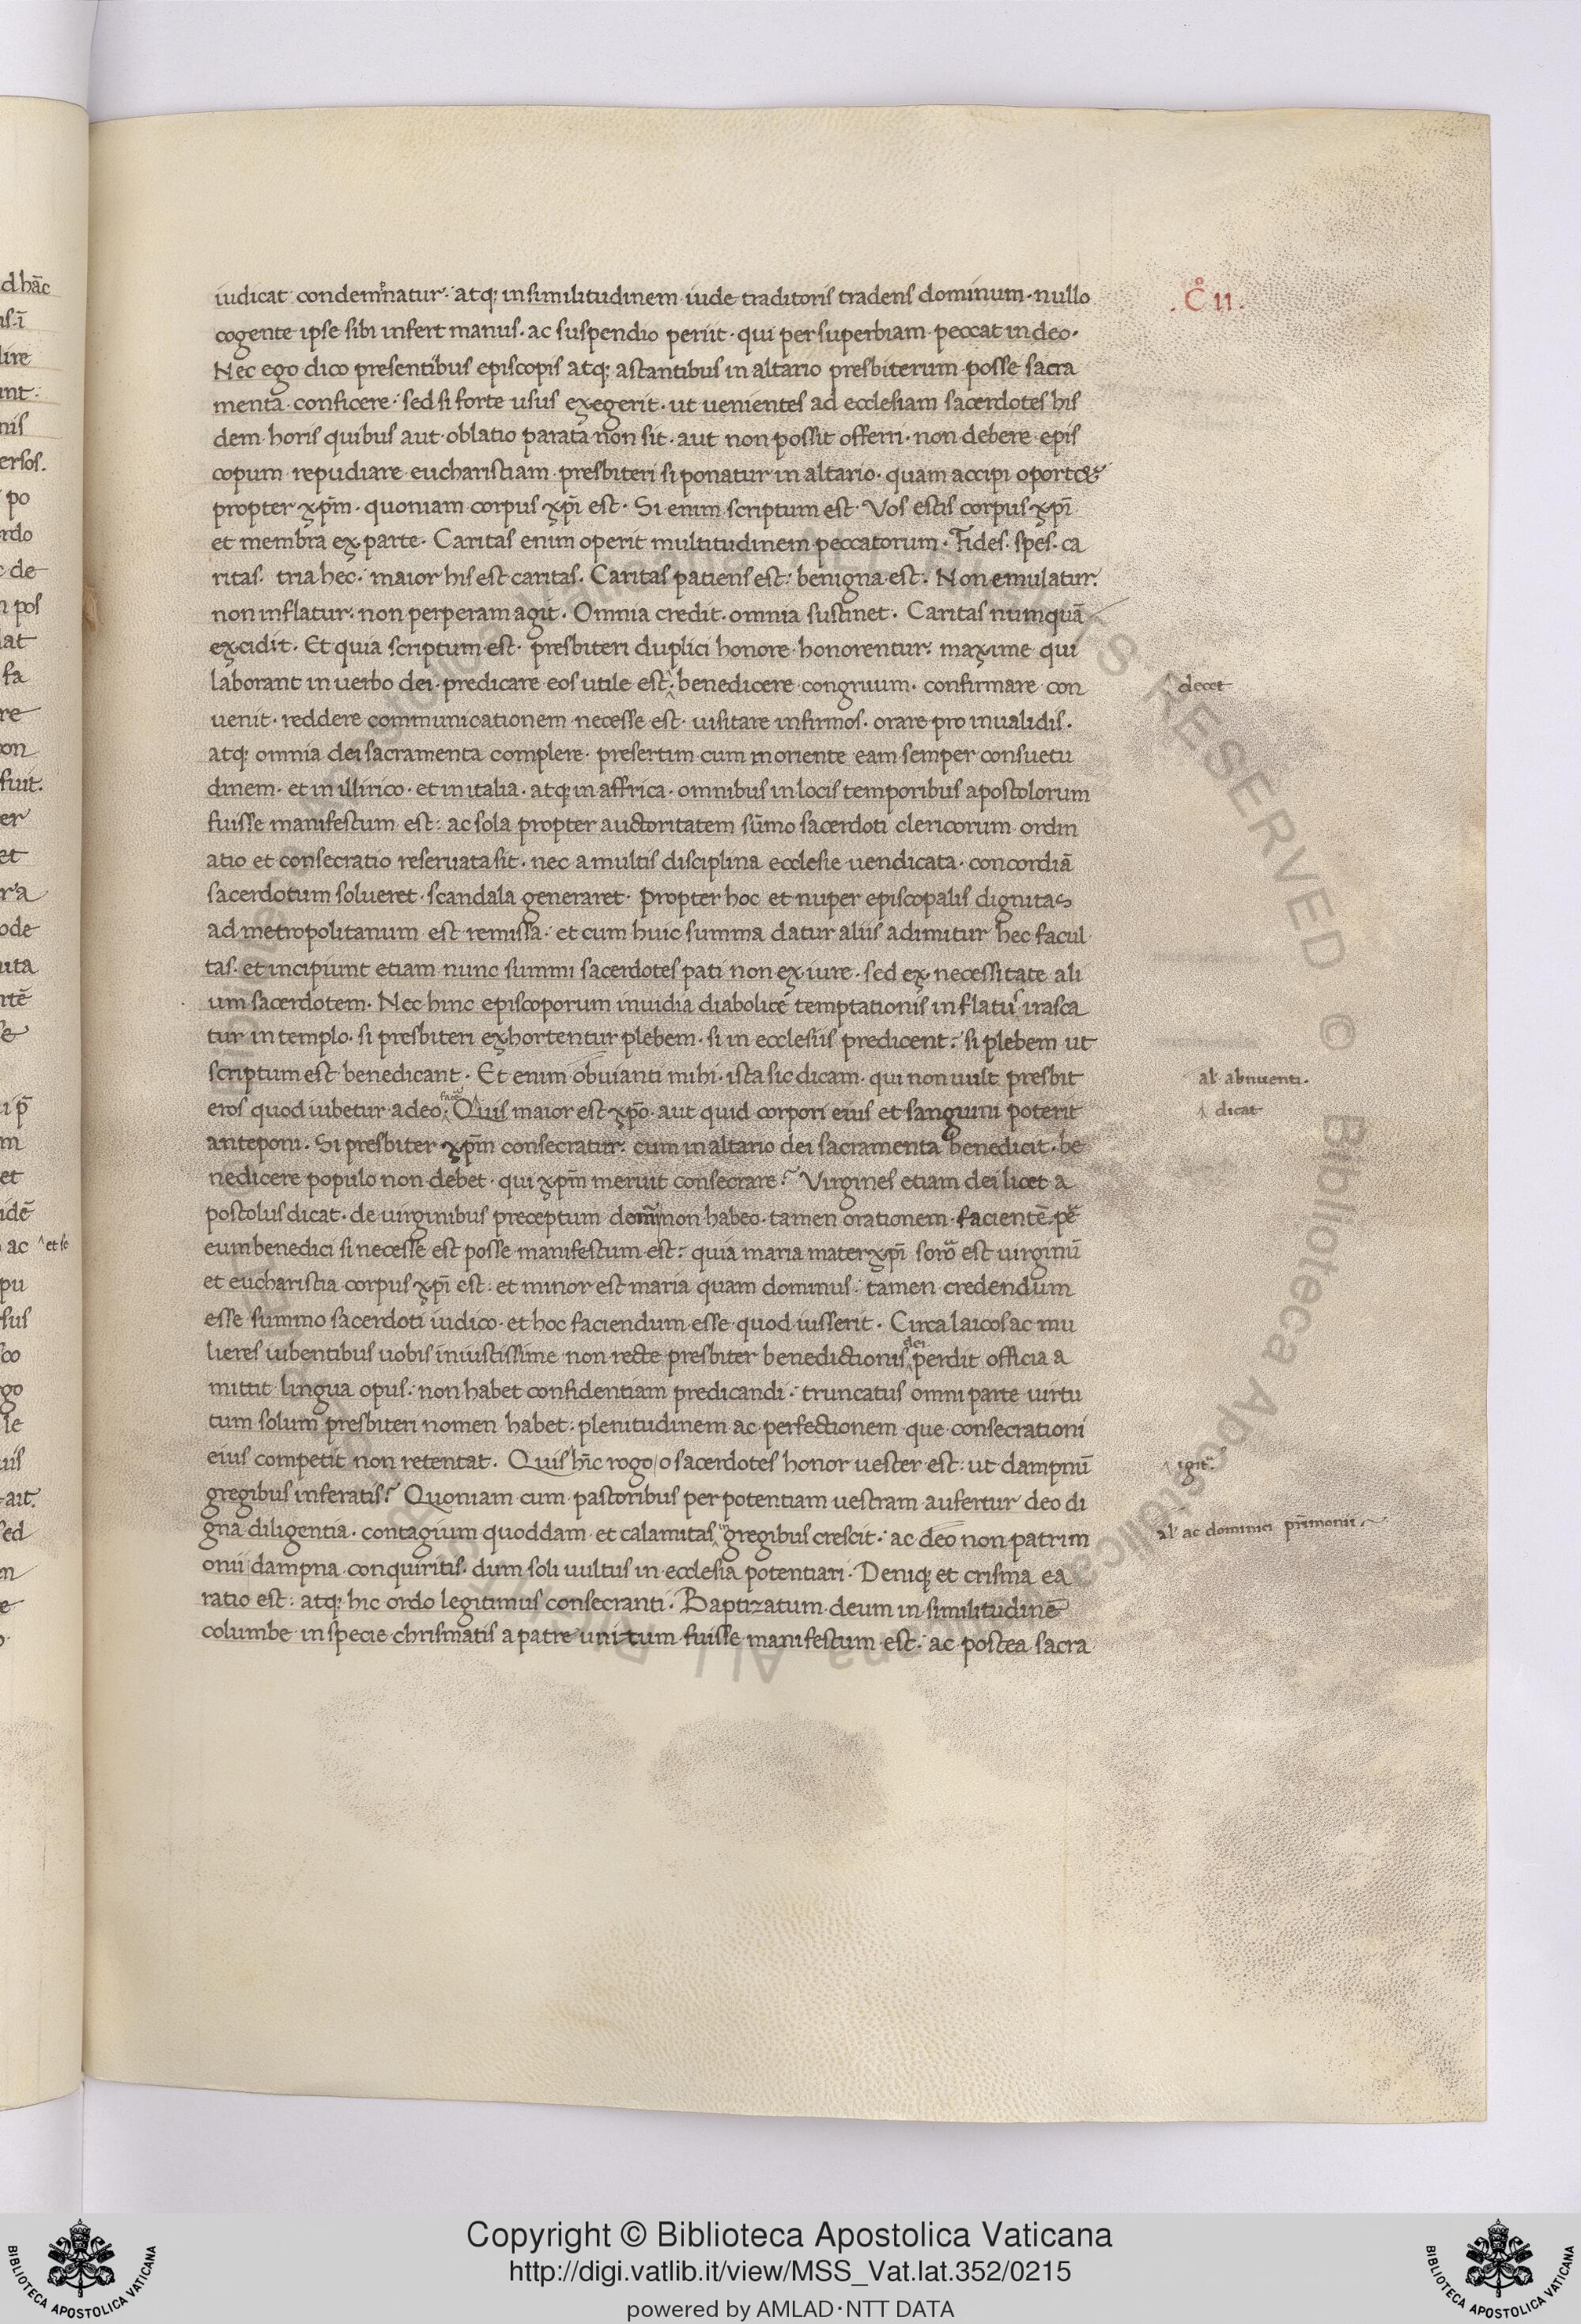 iudicat condemnatur. atq; in similitudinem iude traditoris tradens dominum. nullo
.C̊ 11.
cogente ipse sibi infert manus. ac suspendio periit. qui per superbiam peccat in deo.
Nec ego dico presentibus episcopis atq; astantibus in altario presbiterum posse sacra
menta conficere. sed si forte usus exegerit. ut uenientes ad ecclesiam sacerdotes his
dem horis quibus aut oblatio parata non sit. aut non possit offerri. non debere epis
copum repudiare eucharistiam presbiteri si ponatur in altario. quam accipi oportet
propter xp̄m. quoniam corpus xp̄i est. Si enim scriptum est. Vos estis corpus xp̄i
et membra ex parte. Caritas enim operit multitudinem peccatorum. Fides. spes. ca
ritas. tria hec. maior his est caritas. Caritas patiens est. benigna est. Non emulatur.
non inflatur. non perperam agit. Omnia credit. omnia sustinet. Caritas numquā
excidit. Et quia scriptum est. presbiteri duplici honore honorentur. maxime qui
laborant in uerbo dei. predicare eos utile est. benedicere congruum. confirmare con
decet
uenit. reddere communicationem necesse est. uisitare infirmos. orare pro inualidis.
atq; omnia dei sacramenta complere. presertim cum in oriente eam semper consuetu
dinem. et in illirico. et in italia. atq; in affrica. omnibus in locis temporibus apostolorum
fuisse manifestum est. ac sola propter auctoritatem sūmo sacerdoti clericorum ordin
atio et consecratio reseruata sit. nec a multis disciplina ecclesie uendicata. concordiā
sacerdotum solueret. scandala generaret. Propter hoc et nuper episcopalis dignitas
ad metropolitanum est remissa. et cum huic summa datur aliis adimitur hec facul
tas. et incipiunt etiam nunc summi sacerdotes pati non ex iure. sed ex necessitate ali
um sacerdotem. Nec hinc episcoporum inuidia diabolice temptationis inflatus irasca
tur in templo. si presbiteri exhortentur plebem. si in ecclesiis predicent. si plebem ut
scriptum est benedicant. Et enim obuianti mihi. ista sic dicam. qui non uult presbit
al' abnuenti.
eros quod iubetur a deo. Quis maior est xp̄o. aut quid corpori eius et sanguini poterit
dicat
anteponi. Si presbiter xp̄m consecratur. cum in altario dei sacramenta benedicit. be
nedicere populo non debet. qui xp̄m meruit consecrare? Virgines etiam dei licet a
postolus dicat. de uirginibus preceptum domini non habeo. tamen orationem facientē. pē
eum benedici si necesse est posse manifestum est. quia maria mater xp̄i soror est uirginū
et eucharistia corpus xp̄i est. et minor est maria quam dominus. tamen credendum
esse summo sacerdoti iudico. et hoc faciendum esse quod iusserit. Circa laicos ac mu
dei
lieres iubentibus uobis iniustissime non recte presbiter benedictionis perdit officia a
mittit lingua opus. non habet confidentiam predicandi. truncatus omni parte uirtu
tum solum presbiteri nomen habet. plenitudinem ac perfectionem que consecrationi
eius competit non retentat. Quis hīc rogo o sacerdotes honor uester est. ut dampnū
igit̄
gregibus inferatis? Quoniam cum pastoribus per potentiam uestram aufertur deo di
gna diligentia. contagium quoddam et calamitas gregibus crescit. ac deo non patrim
al' ac dominici p̄rimonii
onii dampna conquiritis. dum soli uultus in ecclesia potentiari. Deniq; et crisma ea
ratio est. atq; hic ordo legitimus consecranti. Baptizatum deum in similitudinē
columbe in specie chrismatis a patre unitum fuisse manifestum est. ac postea sacra
Copyright © Biblioteca Apostolica Vaticana
http://digi.vatlib.it/view/MSS_Vat.lat.352/0215
powered by AMLAD·NTT DATA